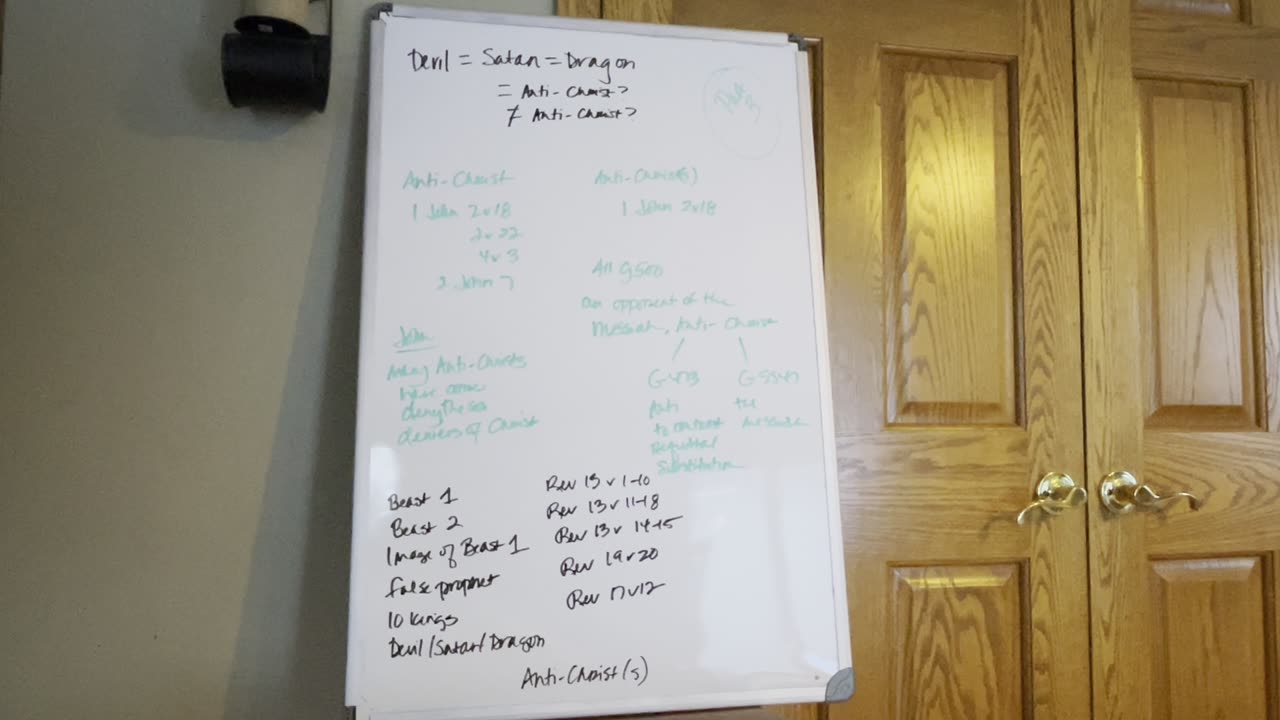 Devil = Satan = Dragon
= Anti-Christ?
≠ Anti-Christ?
Anti-Christ
1 John 2v18
2v22
4v3
2 John 7
Anti-Christ(s)
1 John 2v18
All G500
an opponent of the
Messiah, Anti-Christ
G473
Anti
to contrast
Requital
Substitution
G5547
the
Messiah
John
Many Anti-Christs
have come
deny the son
deniers of Christ
Beast 1 Rev 13 v 1-10
Beast 2 Rev 13 v 11-18
Image of Beast 1 Rev 13 v 14-15
false prophet Rev 19 v 20
10 kings Rev 17 v 12
Devil/Satan/Dragon
Anti-Christ(s)